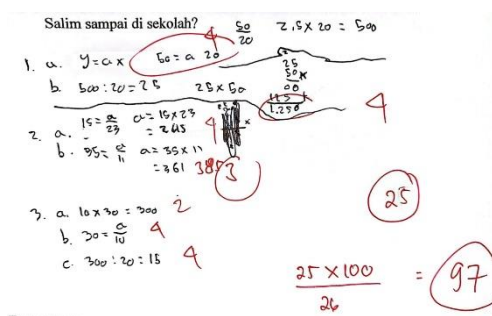 Salim sampai di sekolah?
50/20
2,5 x 20 = 500
1. a. y = ax
50 = a 20
4
b. 500 : 20 = 25
25 x 50
25
50 x
00
125 x
1.250
4
2. a. 15 = a/23 a = 15 x 23
= 245
4
b. 35 = a/11 a = 35 x 11
= 361
385
3
3. a. 10 x 30 = 300
2
b. 30 = a/10
4
c. 300 : 20 = 15
4
25
25 x 100 / 26 = 97